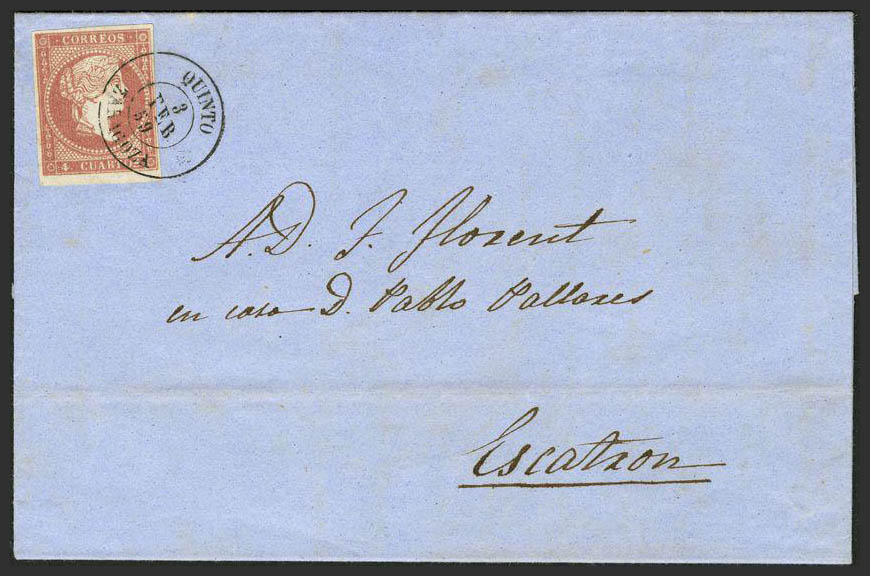 CORREOS
4 CUARTOS
QUINTO
3
FEB
59
ZARAGOZA
A. D. J. Florent
en casa D. Pablo Pallares
Escatron